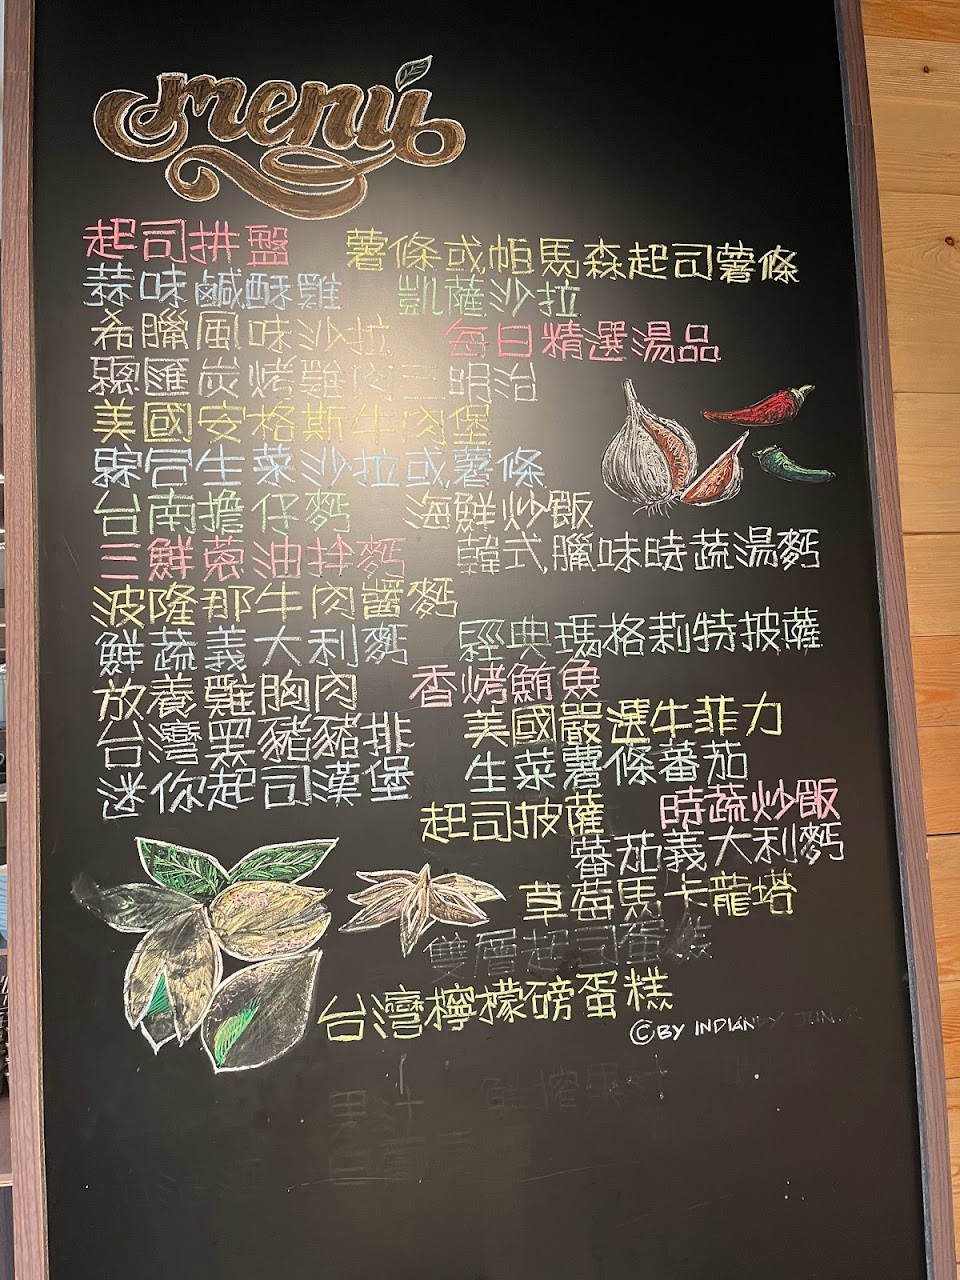 menú
起司拼盤 薯條或帕馬森起司薯條
蒜味鹹酥雞 凱薩沙拉
希臘風味沙拉 每日精選湯品
匯炭烤雞肉三明治
美國安格斯牛肉堡
綜合生菜沙拉或薯條
台南擔仔麵 海鮮炒飯
三鮮蔥油拌麵 韓式臘味時蔬湯麵
波隆那牛肉醬麵
鮮蔬義大利麵 經典瑪格莉特披薩
放養雞胸肉 香烤鮪魚
台灣黑豬豬排 美國嚴選牛菲力
迷你起司漢堡 生菜薯條蕃茄
起司披薩 時蔬炒飯
蕃茄義大利麵
草莓馬卡龍塔
雙層起司蛋糕
台灣檸檬磅蛋糕
©BY INDIAN
果汁